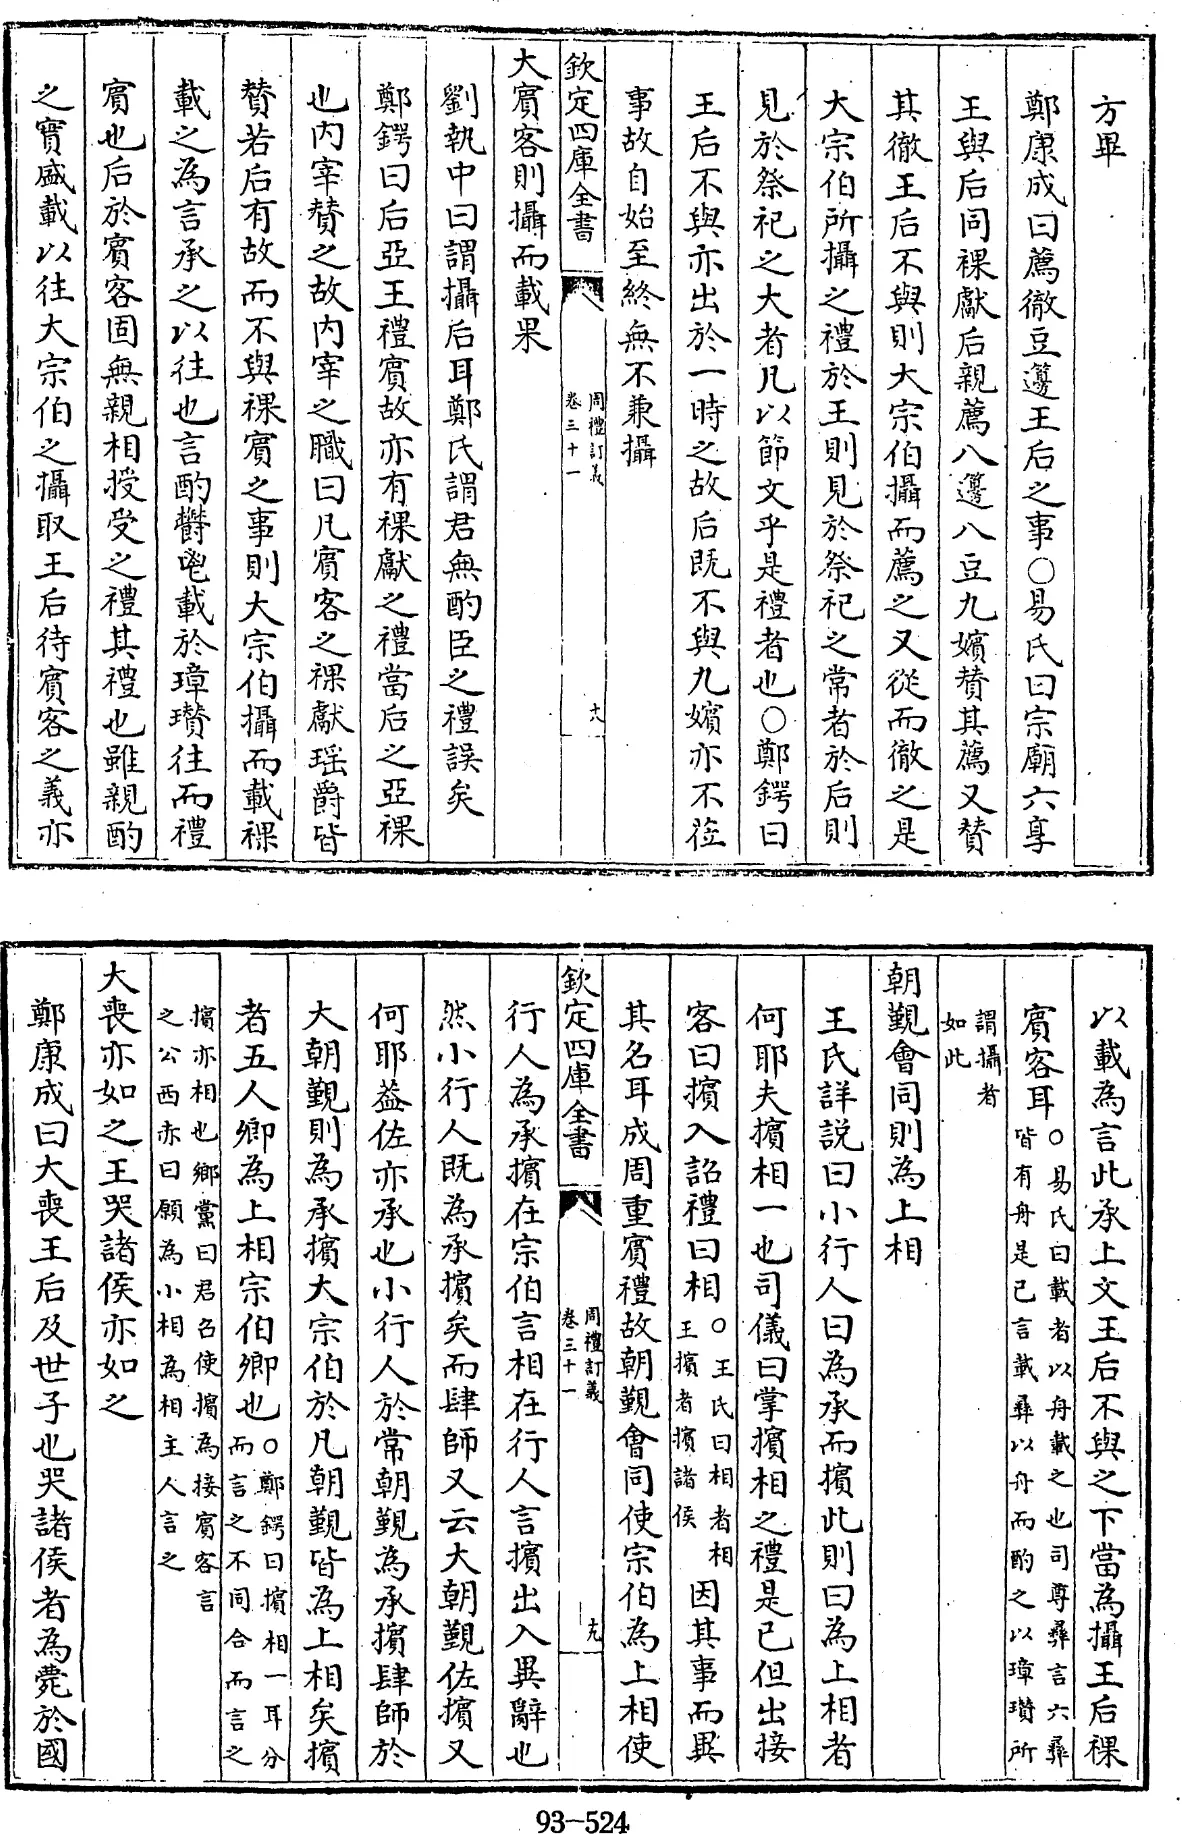 方畢
鄭康成曰薦徹豆籩王后之事○易氏曰宗廟六享
王與后同祼獻后親薦八籩八豆九嬪賛其薦又賛
其徹王后不與則大宗伯攝而薦之又從而徹之是
大宗伯所攝之禮於王則見於祭祀之常者於后則
見於祭祀之大者凡以節文乎是禮者也○鄭鍔曰
王后不與亦出於一時之故后既不與九嬪亦不蒞
事故自始至終無不兼攝
欽定四庫全書
周禮訂義
卷三十一
十八
大賓客則攝而載果
劉執中曰謂攝后耳鄭氏謂君無酌臣之禮誤矣
鄭鍔曰后亞王禮賓故亦有祼獻之禮當后之亞祼
也内宰賛之故内宰之職曰凡賓客之祼獻瑶爵皆
賛若后有故而不與祼賓之事則大宗伯攝而載祼
載之為言承之以往也言酌鬱鬯載於璋瓚往而禮
賓也后於賓客固無親相授受之禮其禮也雖親酌
之實盛載以往大宗伯之攝取王后待賓客之義亦
以載為言此承上文王后不與之下當為攝王后祼
賓客耳○易氏曰載者以舟載之也司尊彝言六彝
皆有舟是已言載彝以舟而酌之以璋瓚所
謂攝者
如此
朝覲會同則為上相
王氏詳説曰小行人曰為承而擯此則曰為上相者
何耶夫擯相一也司儀曰掌擯相之禮是已但出接
客曰擯入詔禮曰相○王氏曰相者相
王擯者擯諸侯因其事而異
其名耳成周重賓禮故朝覲會同使宗伯為上相使
欽定四庫全書
周禮訂義
卷三十一
十九
行人為承擯在宗伯言相在行人言擯出入異辭也
然小行人既為承擯矣而肆師又云大朝覲佐擯又
何耶葢佐亦承也小行人於常朝覲為承擯肆師於
大朝覲則為承擯大宗伯於凡朝覲皆為上相矣擯
者五人卿為上相宗伯卿也○鄭鍔曰擯相一耳分
而言之不同合而言之
擯亦相也鄉黨曰君召使擯為接賓客言
之公西赤曰願為小相為相主人言之
大喪亦如之王哭諸侯亦如之
鄭康成曰大喪王后及世子也哭諸侯者為薨於國
93-524